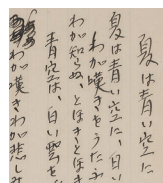 夏は青い空に
夏は青い空に、白い
わが嘆きをうたふ
わが知らぬ、とほきとほき
青空は、白い雲を
わが嘆きわが悲しみ